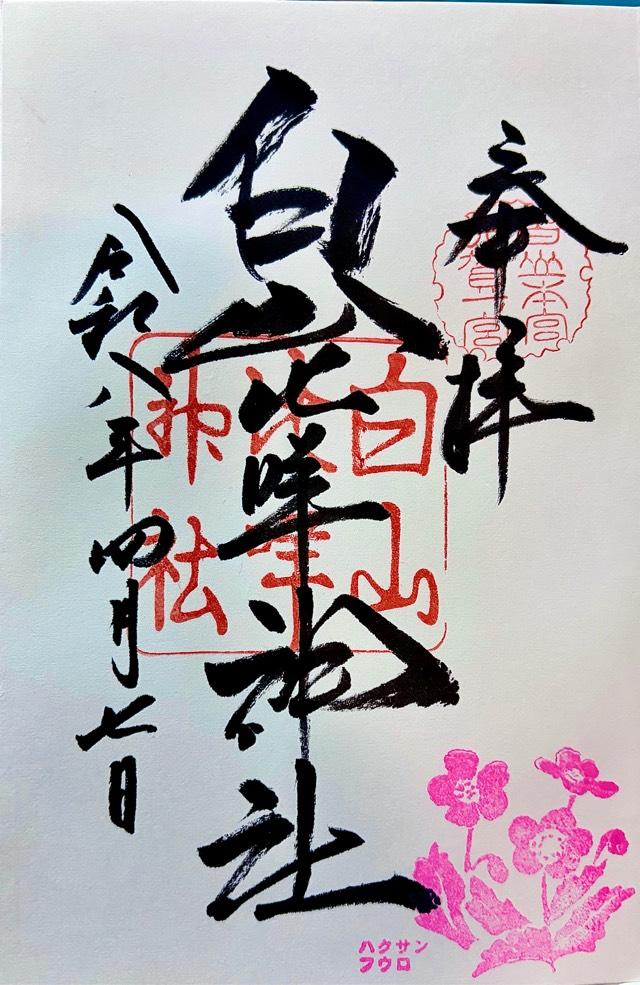 奉拝
白山比咩神社
白山
比咩
神社
令和八年四月七日
ハクサン
フウロ